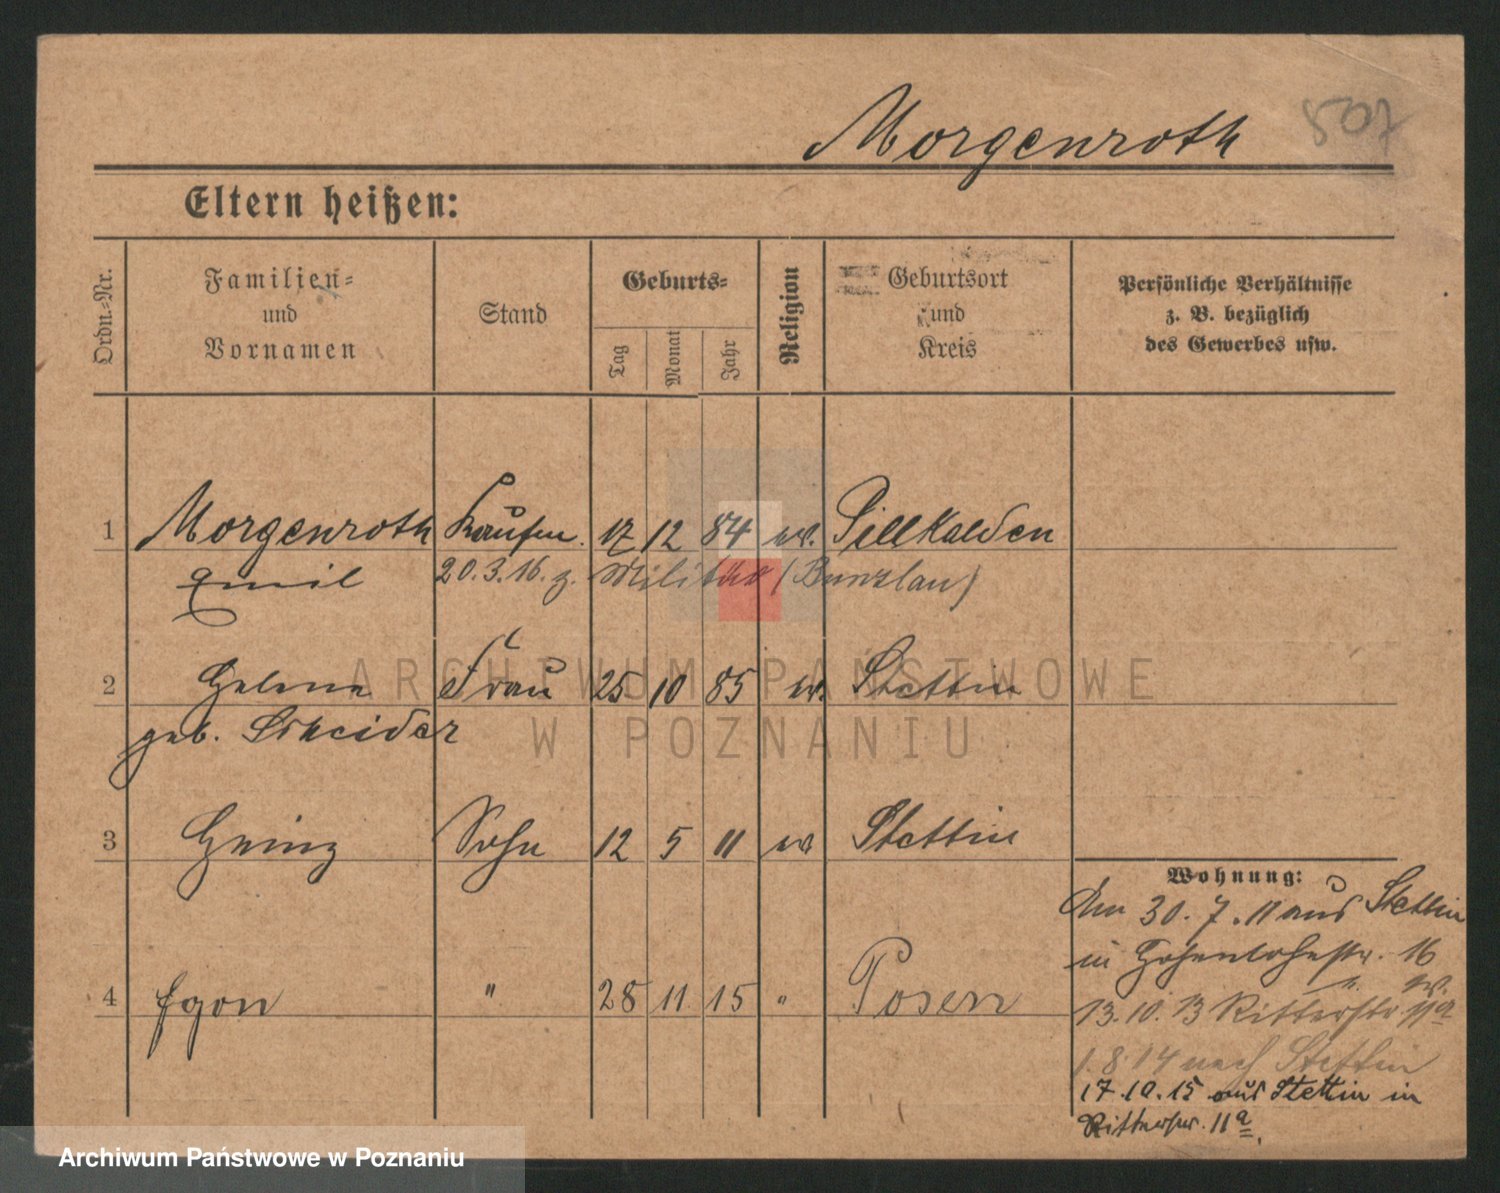 Morgenroth 507
Eltern heißen:
Ordn.-Nr.
Familien-
und
Vornamen
Stand
Geburts-
Tag
Monat
Jahr
Religion
Geburtsort
und
Kreis
Persönliche Verhältnisse
z. B. bezüglich
des Gewerbes usw.
1 Morgenroth Kaufm. 17 12 84 ev. Pillkalden
Emil 20.3.16. z. Militär (Bunzlau)
2 Helene Frau 25 10 85 ev. Stettin
geb. Schneider
3 Heinz Sohn 12 5 11 ev Stettin
4 Egon " 28 11 15 " Posen
Wohnung:
Am 30.7.11 aus Stettin
in Hohenlohestr. 16
13.10.13 Ritterstr. 11a
1.8.14 nach Stettin
17.10.15 aus Stettin in
Ritterstr. 11a.
ARCHIWUM PAŃSTWOWE
W POZNANIU
Archiwum Państwowe w Poznaniu